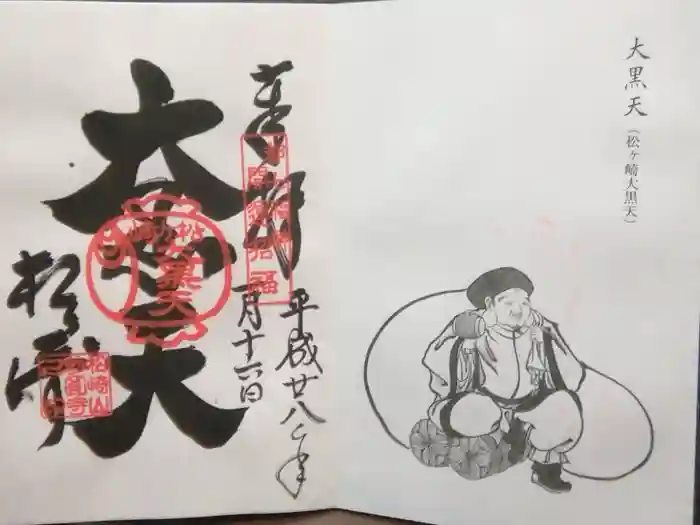 大黒天
(松ヶ崎大黒天)
奉拝
平成廿八年
一月十六日
大黒天
松ヶ崎
大黒天
松崎山